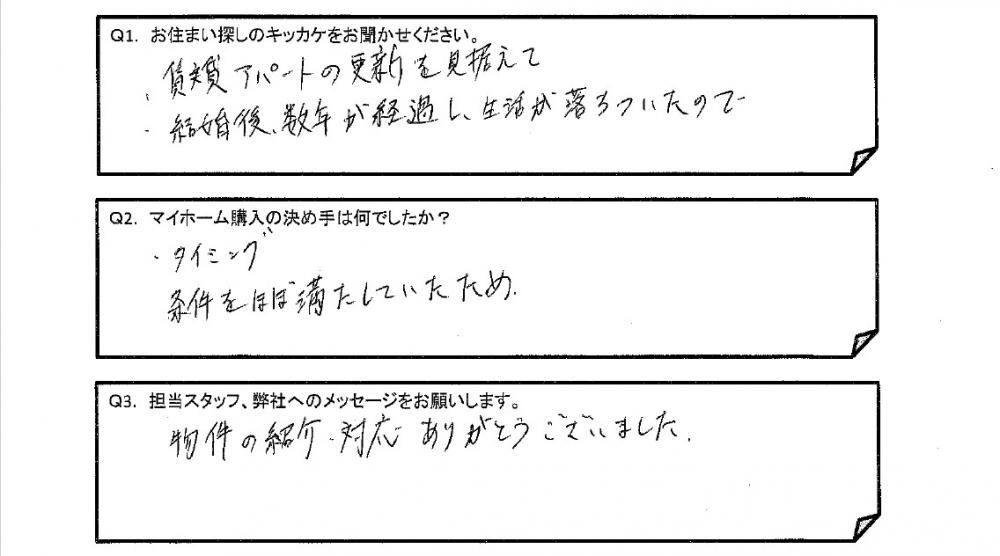 Q1. お住まい探しのキッカケをお聞かせください。
・賃貸アパートの更新を見据えて
・結婚後、数年が経過し、生活が落ちついたので
Q2. マイホーム購入の決め手は何でしたか？
・タイミング
条件をほぼ満たしていたため.
Q3. 担当スタッフ、弊社へのメッセージをお願いします。
物件の紹介・対応 ありがとうございました.